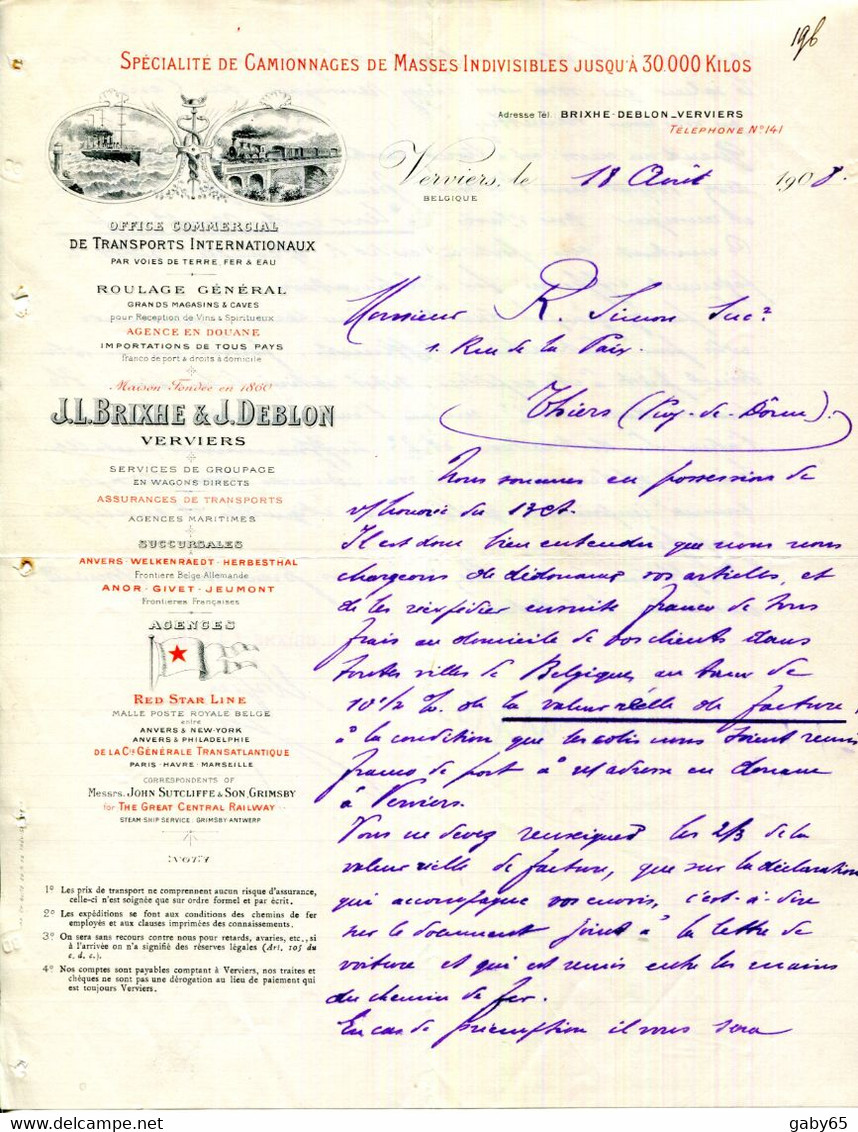 196
SPÉCIALITÉ DE CAMIONNAGES DE MASSES INDIVISIBLES JUSQU'À 30.000 KILOS
Adresse Tél. BRIXHE-DEBLON_VERVIERS
TÉLÉPHONE Nº 141
Verviers, le 18 Août 1908.
BELGIQUE
OFFICE COMMERCIAL
DE TRANSPORTS INTERNATIONAUX
PAR VOIES DE TERRE, FER & EAU
ROULAGE GÉNÉRAL
GRANDS MAGASINS & CAVES
pour Réception de Vins & Spiritueux
AGENCE EN DOUANE
IMPORTATIONS DE TOUS PAYS
franco de port & droits à domicile
Maison Fondée en 1860
J.L. BRIXHE & J. DEBLON
VERVIERS
SERVICES DE GROUPAGE
EN WAGONS DIRECTS
ASSURANCES DE TRANSPORTS
AGENCES MARITIMES
SUCCURSALES
ANVERS-WELKENRAEDT-HERBESTHAL
Frontière Belge-Allemande
ANOR-GIVET-JEUMONT
Frontières Françaises
AGENCES
RED STAR LINE
MALLE POSTE ROYALE BELGE
entre
ANVERS & NEW-YORK
ANVERS & PHILADELPHIE
DE LA Cie GÉNÉRALE TRANSATLANTIQUE
PARIS-HAVRE-MARSEILLE
CORRESPONDENTS OF
Messrs. JOHN SUTCLIFFE & SON, GRIMSBY
for THE GREAT CENTRAL RAILWAY
STEAM-SHIP SERVICE: GRIMSBY-ANTWERP
NOTA
1º Les prix de transport ne comprennent aucun risque d'assurance,
celle-ci n'est soignée que sur ordre formel et par écrit.
2º Les expéditions se font aux conditions des chemins de fer
employés et aux clauses imprimées des connaissements.
3º On sera sans recours contre nous pour retards, avaries, etc., si
à l'arrivée on n'a signifié des réserves légales (Art. 105 du
c. d. c.).
4º Nos comptes sont payables comptant à Verviers, nos traites et
chèques ne sont pas une dérogation au lieu de paiement qui
est toujours Verviers.
Monsieur R. Simon Sucr
1. Rue de la Paix.
Thiers (Puy-de-Dôme).
Nous sommes en possession de
v/ honorée du 13 ct.
Il est donc bien entendu que nous nous
chargeons de dédouaner vos articles, et
de les réexpédier ensuite franco de tous
frais au domicile de vos clients dans
toutes villes de Belgique, au taux de
10 1/2 %. de la valeur réelle de facture,
à la condition que les colis nous soient remis
franco de port à n/ adresse en douane
à Verviers.
Vous ne devez renseigner les 2/3 de la
valeur réelle de facture, que sur la déclaration
qui accompagne vos envois, c'est-à-dire
sur le document joint à la lettre de
voiture et qui est remis entre les mains
du chemin de fer.
En cas de préemption il vous sera
gaby65